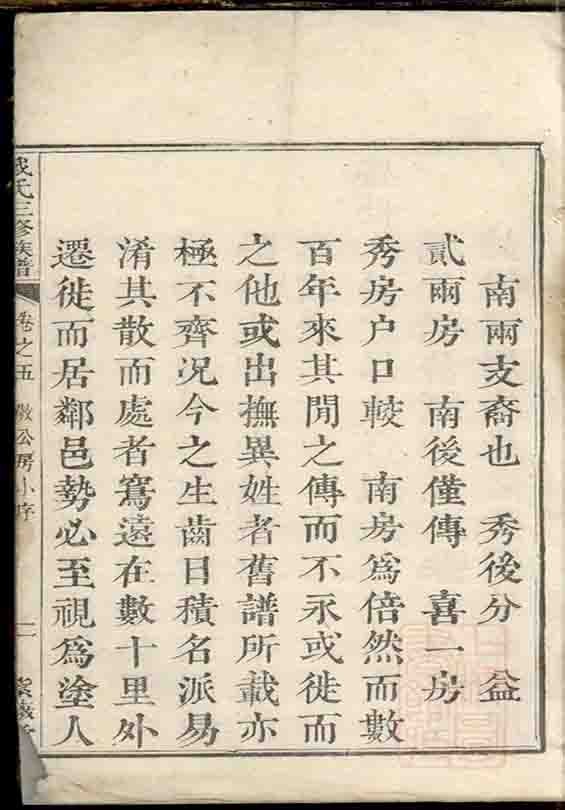 南兩支裔也　秀後分　益
貳兩房　南後僅傳　喜一房
秀房户口較　南房爲倍然而數
百年來其閒之傳而不永或徙而
之他或出撫異姓者舊譜所載亦
極不齊况今之生齒日積名派易
淆其散而處者窵遠在數十里外
遷徙而居鄰邑勢必至視爲塗人
氏三修族譜　卷之五　公房小序